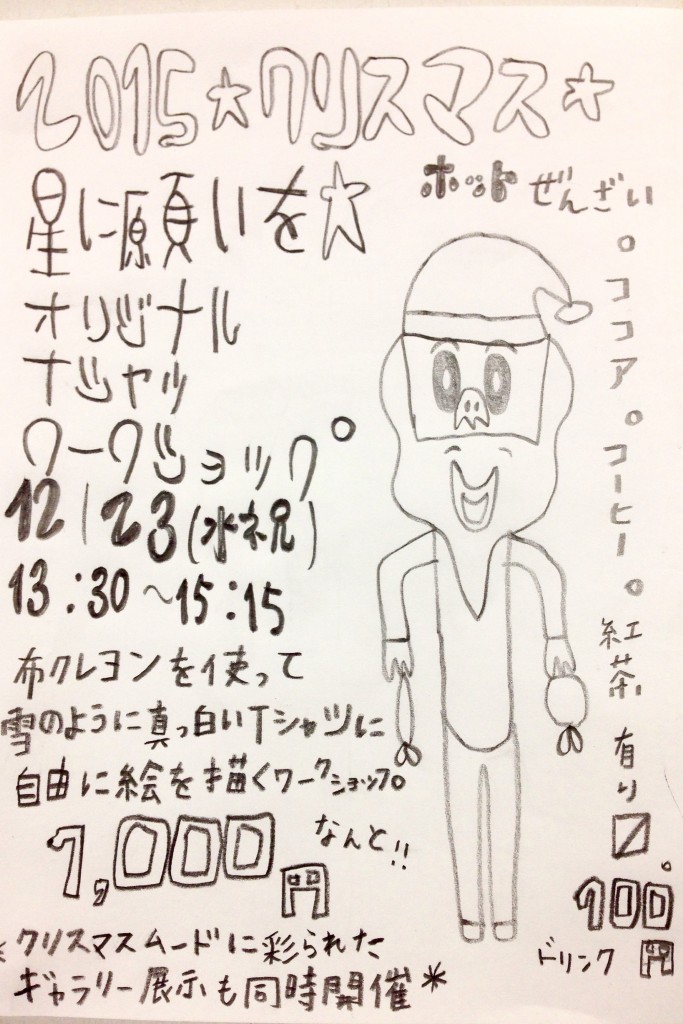 2015☆クリスマス☆
星に願いを☆
オリジナル
Tシャツ
ワークショップ
12/23(水祝)
13:30〜15:15
布クレヨンを使って
雪のように真っ白いTシャツに
自由に絵を描くワークショップ。
なんと!!
1,000円
*クリスマスムードに彩られた
ギャラリー展示も同時開催*
ホットぜんざい
。ココア。コーヒー。紅茶有り
100円
ドリンク